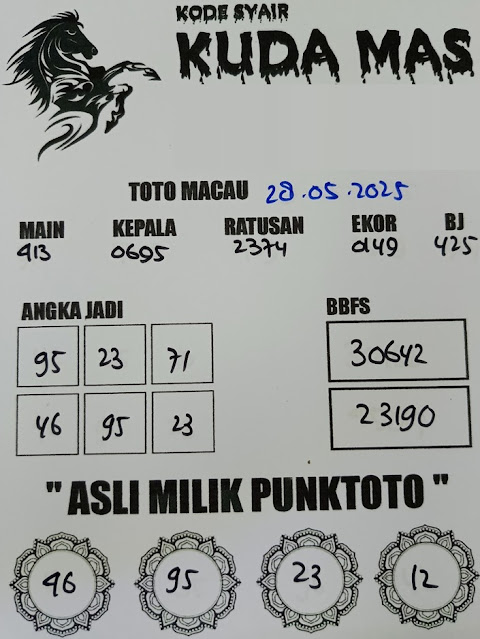 KODE SYAIR
KUDA MAS
TOTO MACAU 28.05.2025
MAIN KEPALA RATUSAN EKOR BJ
913 0695 2374 0149 425
ANGKA JADI BBFS
95 23 71 30642
46 95 23 23190
" ASLI MILIK PUNKTOTO "
46 95 23 12